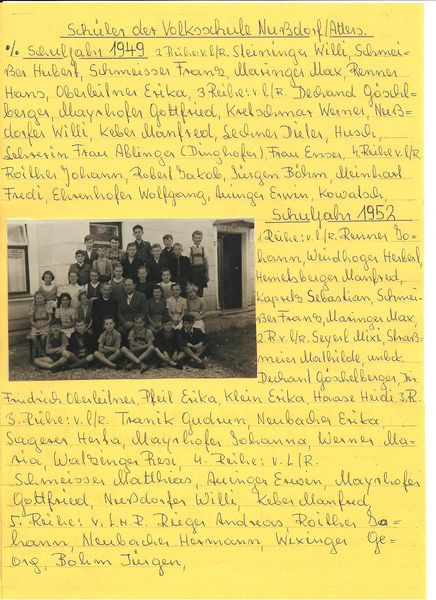 Schüler der Volksschule Nußdorf/Atters.
% Schuljahr 1949 2 Reihe: v. l/R. Steininger Willi, Schmei-
ßer Hubert, Schmeisser Franz, Maringer Max, Renner
Hans, Oberleitner Erika, 3 Reihe: v. l/R. Dechand Göschl-
berger, Mayrhofer Gottfried, Kretschmar Werner, Nuß-
dorfer Willi, Keber Manfred, Lechner Dieter, Husch,
Lehrerin Frau Ablinger (Dinghofer), Frau Enser, 4. Reihe v. l/r.
Roither Johann, Robert Jakob, Jürgen Böhm, Meinhart
Fredi, Ehrenhofer Wolfgang, Auinger Erwin, Kowatsch
Schuljahr 1952
1 Reihe: v. l/R. Renner Jo-
hann, Windhager Herbert,
Hemetsberger Manfred,
Kaprels Sebastian, Schmei-
ßer Franz, Maringer Max,
2. R v. l/R. Seyerl Mixi, Straß-
meier Mathilde, unbek.
Dechant Göschelberger, Dir.
Friedrich Oberleitner, Pfeil Erika, Klein Erika, Haase Heidi 3. R.
3. Reihe: v. l/r. Tranik Gudrun, Neubacher Erika
Sagerer Herta, Mayrhofer Johanna, Werner Ma-
ria, Walzinger Resi, 4. Reihe: v. L/R.
Schmeisser Matthias, Auinger Erwin, Mayrhofer
Gottfried, Nußdorfer Willi, Keber Manfred,
5. Reihe: v. L n. R. Rieger Andreas, Roither Jo-
hann, Neubacher Hermann, Wixinger Ge-
org, Böhm Jürgen,